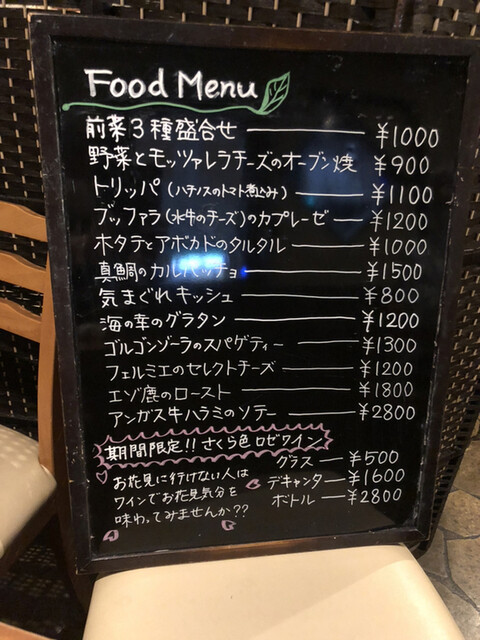 Food Menu
前菜3種盛合せ ¥1000
野菜とモッツァレラチーズのオーブン焼 ¥900
トリッパ(ハチノスのトマト煮込み) ¥1100
ブッファラ(水牛のチーズ)のカプレーゼ ¥1200
ホタテとアボカドのタルタル ¥1000
真鯛のカルパッチョ ¥1500
気まぐれキッシュ ¥800
海の幸のグラタン ¥1200
ゴルゴンゾーラのスパゲティー ¥1300
フェルミエのセレクトチーズ ¥1200
エゾ鹿のロースト ¥1800
アンガス牛ハラミのソテー ¥2800
期間限定!! さくら色ロゼワイン
グラス ¥500
デキャンタ ¥1600
ボトル ¥2800
お花見に行けない人は
ワインでお花見気分を
味わってみませんか??